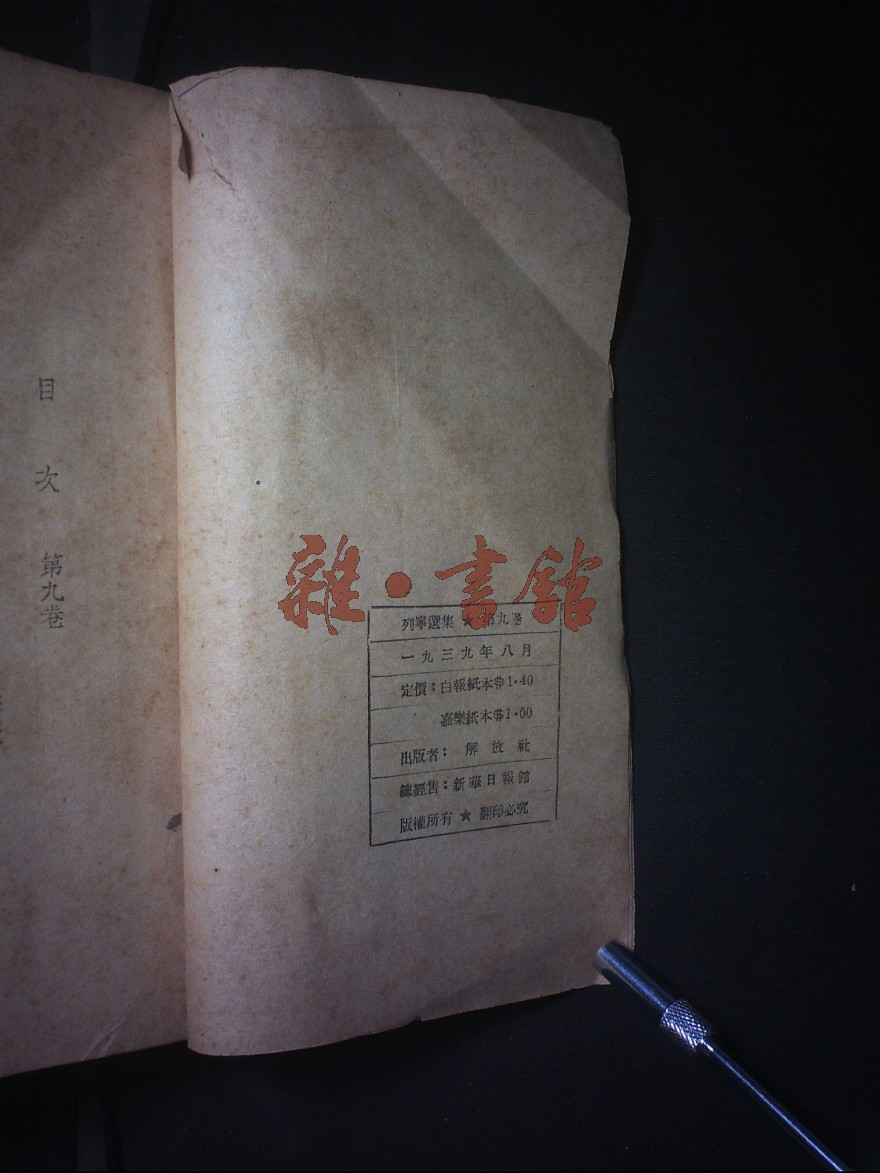 目次 第九卷
雜·書館
列寧選集 ★ 第九卷
一九三九年八月
定價：白報紙本$1.40
嘉樂紙本$1.00
出版者：解放社
總經售：新華日報館
版權所有 ★ 翻印必究